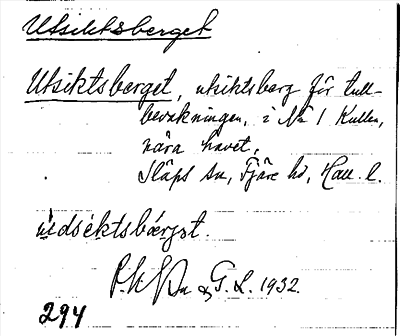 Utsiktsberget
Utsiktsberget, utsiktsberg för tull-
bevakningen, i Nr 1 Kullen,
nära havet,
Släps sn, Fjäre hd, Hall. l.
G. L. 1932.
294